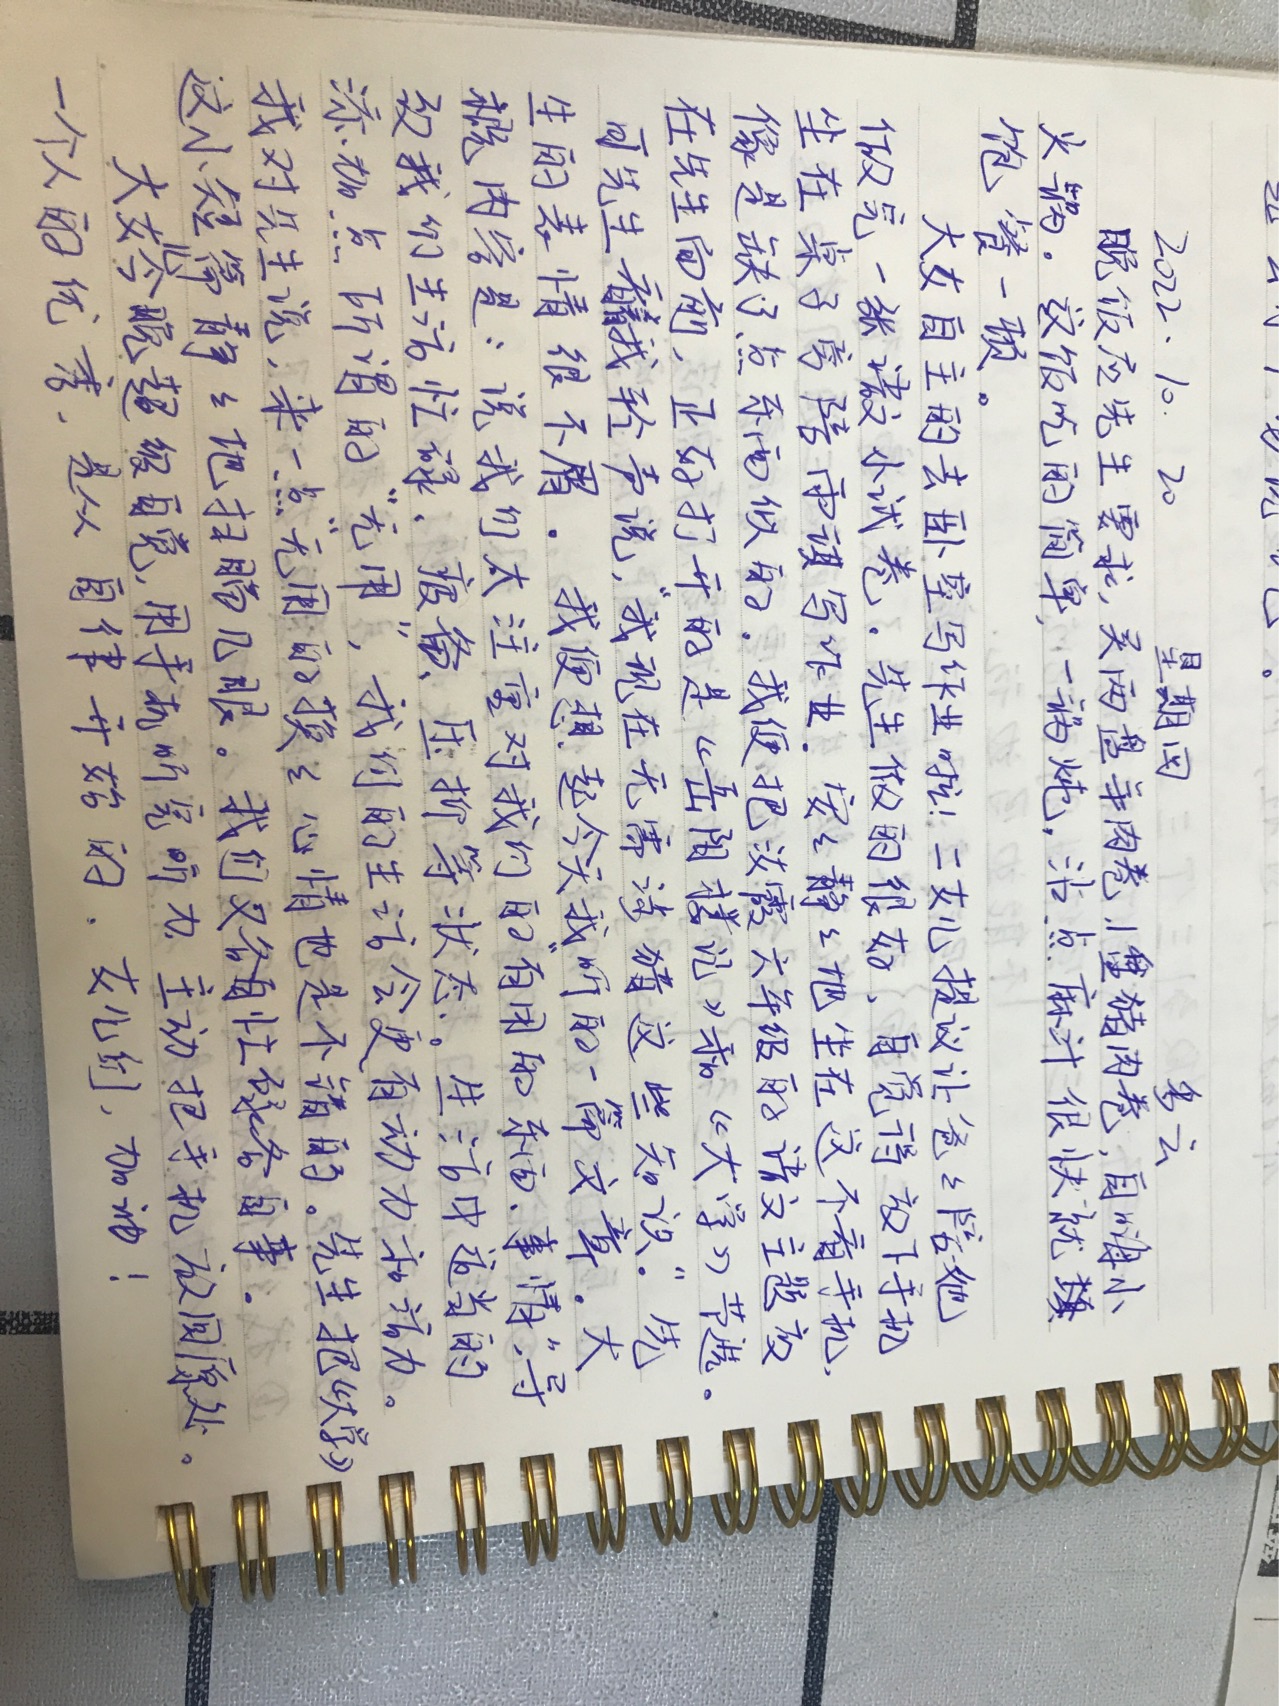 2022.10.20 星期四 多云
晚饭应先生要求,买两盘羊肉卷,1盘猪肉卷,自涮小
火锅。这饭吃的简单,一锅炖,沾点麻汁很快就
饱餐一顿。
大女自主的去卧室写作业啦!二女儿提议让爸爸陪她
做完一张数小试卷。先生做的很好,自觉得放下手机
坐在桌子旁陪雨淇写作业。安安静静地坐在这不看手机,
像是缺了点东西似的。我便把 六年级的语文主题放
在先生面前,正好打开的是《岳阳楼记》和《大学》节选。
可先生 我轻声说,“我现在无需读猜这些知识。”先
生的表情很不屑。我便想起今天我听的一篇文章。大
概内容是:说我们太注重对我们的“有用的东西、事情”,导
致我们生活忙碌、疲惫、压抑等状态。生活中适当的
添加点所谓的“无用”,我们的生活会更有动力和活力。
我对先生说,来一点“无用”的换换心情也是不错的。先生把《大学》
这小短篇静静地扫瞄几眼。我们又各自忙碌各自事。
大女今晚超级自觉,用手机听完听力主动把手机放回原处。
一个人的优秀,是从自律开始的。女儿们,加油!